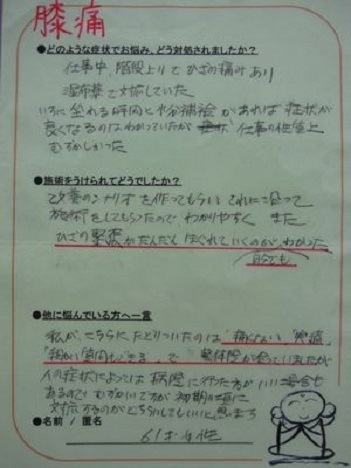 膝痛
●どのような症状でお悩み、どう対処されましたか?
仕事中、階段上りでひざの痛みあり
湿布薬で対応していた
いすに坐れる時間と水分補給があれば症状が
良くなるのはわかっていたが 仕事の性質上
むずかしかった
●施術をうけられてどうでしたか?
改善のシナリオを作ってもらい それに沿って
施術をしてもらったので わかりやすく また
ひざの緊張がだんだんほぐれていくのがわかった
自分でも
●他に悩んでいる方へ一言
私が、こちらに、たどりついたのは「痛くない」
「細かい質問もできる」で 整体院が合っていましたが
人の症状によっては病院に行った方がいい場合も
あるので むずかしいですが 初期の頃に
対応するのが どちらにしてもいいと思います
●名前 / 匿名
61才 女性